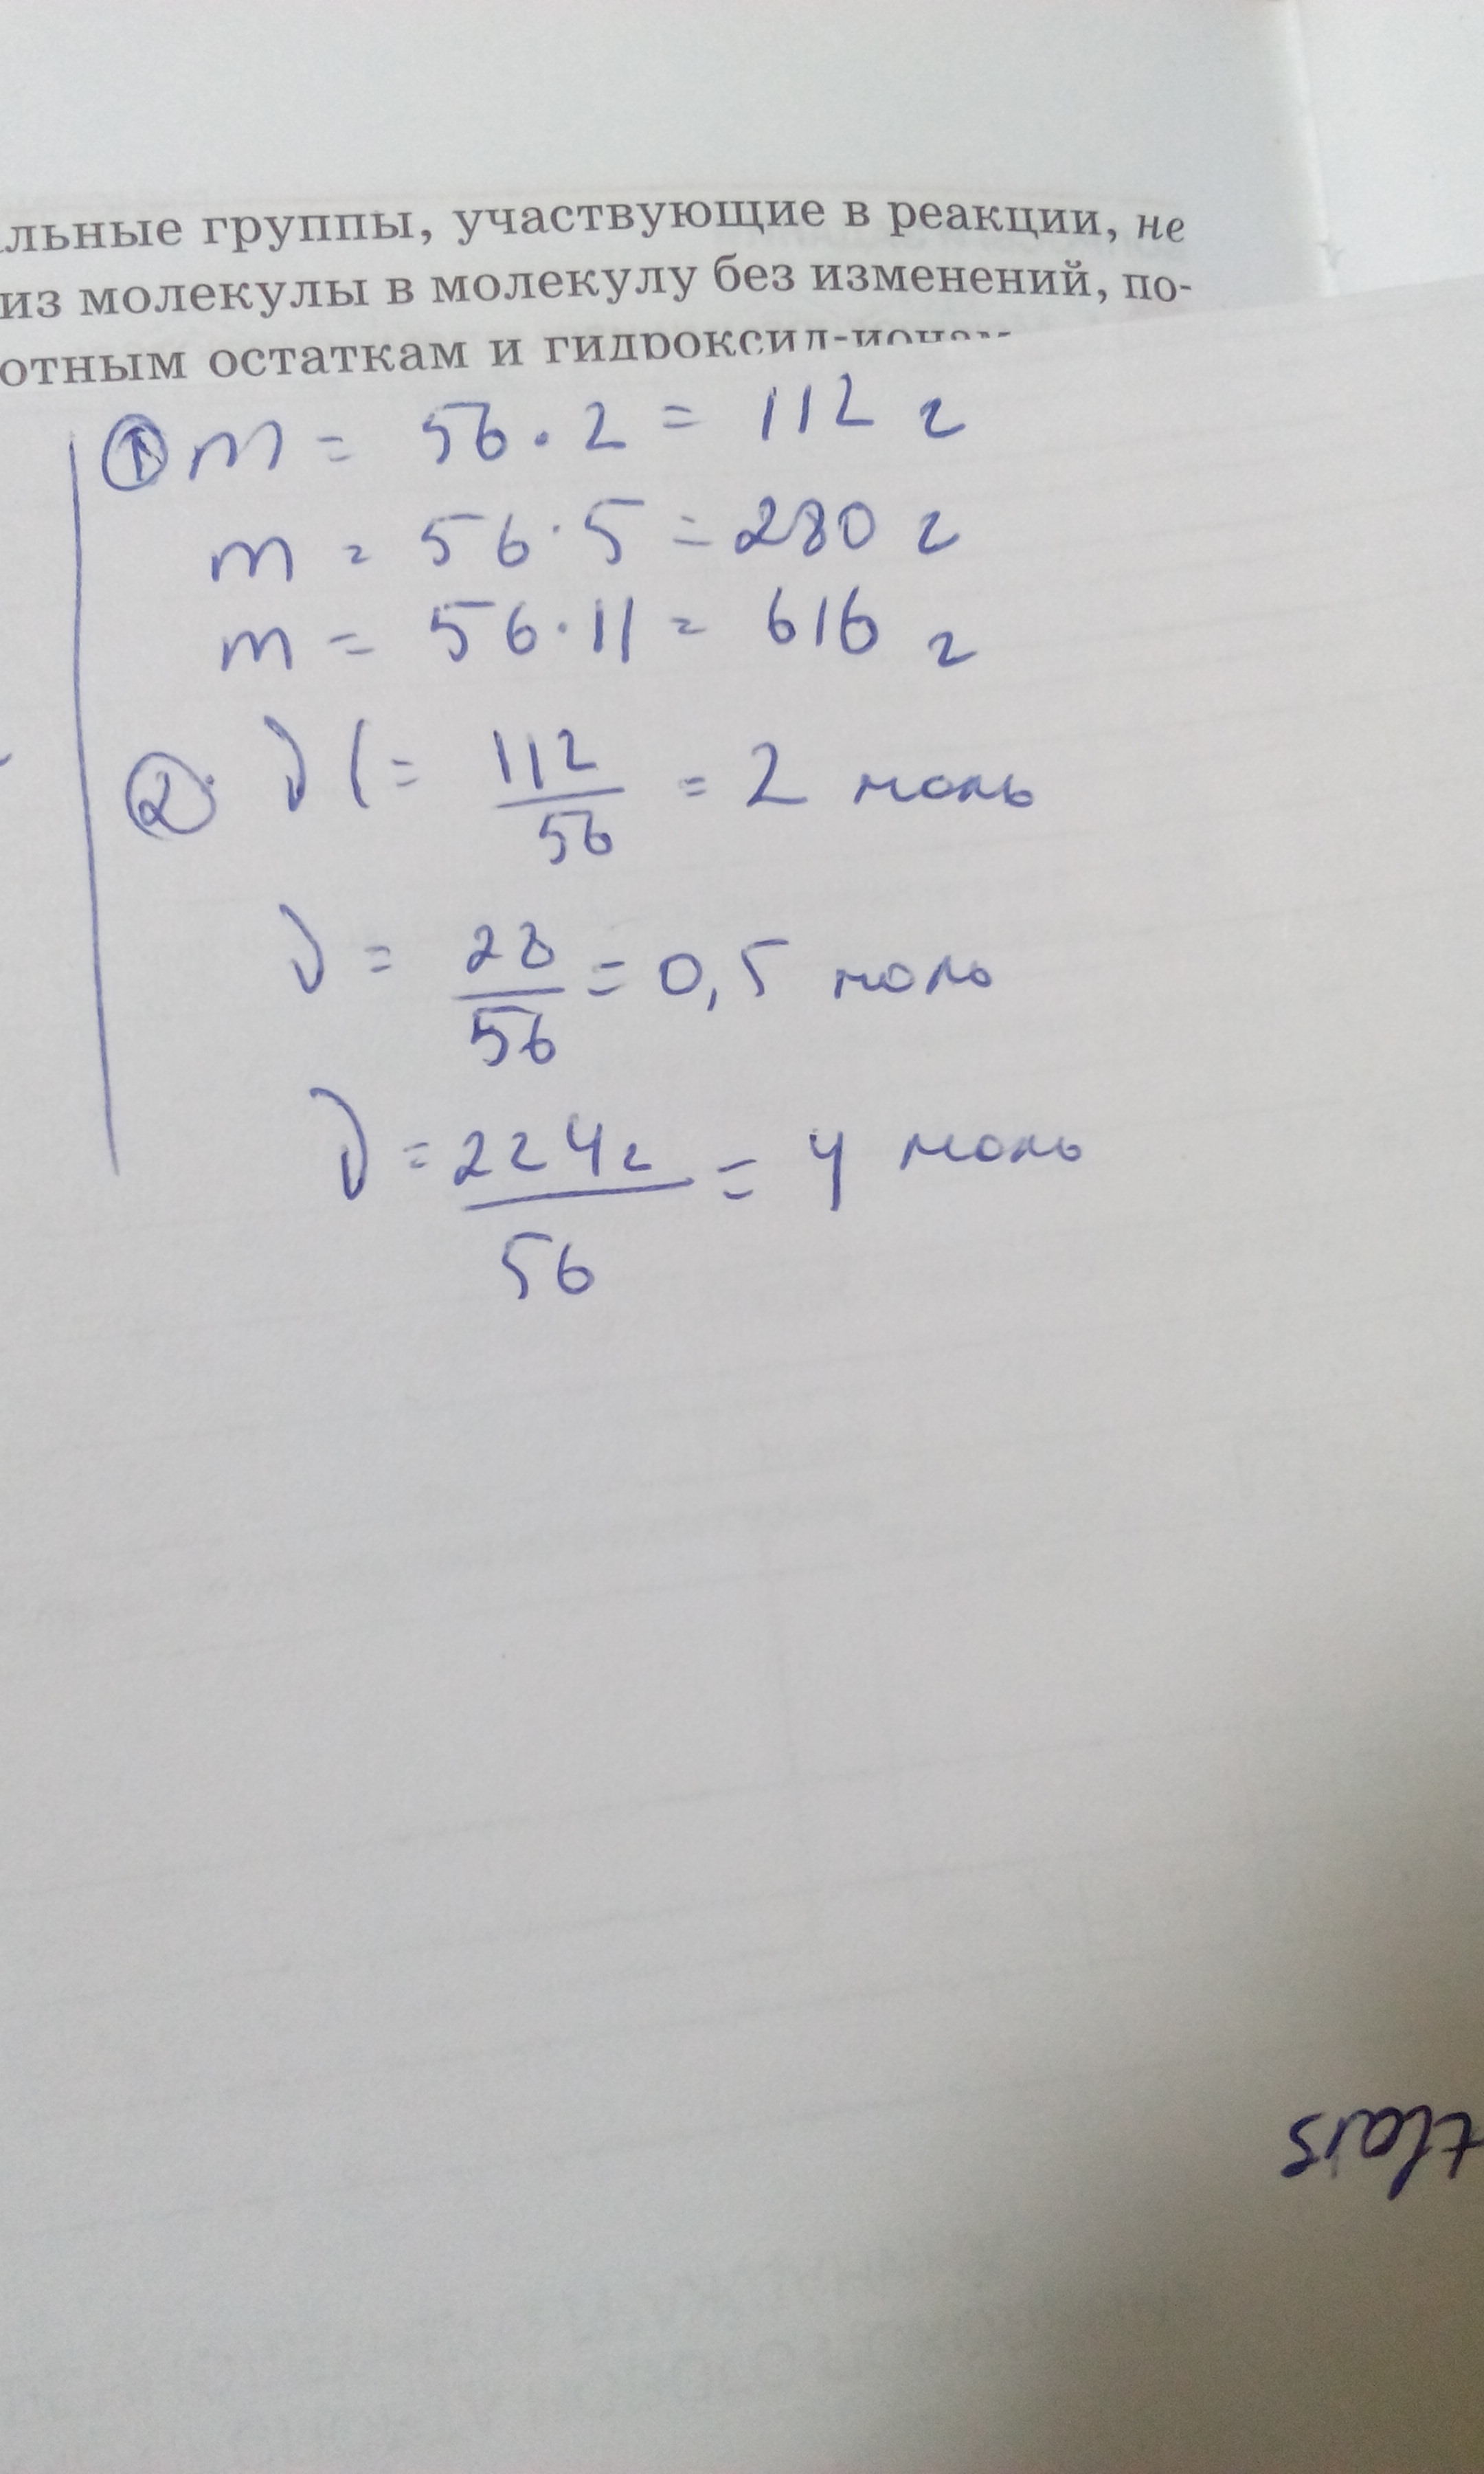 льные группы, участвующие в реакции, не
из молекулы в молекулу без изменений, по-
отным остаткам и гидроксид-ионам
① m = 56 · 2 = 112 г
m = 56 · 5 = 280 г
m = 56 · 11 = 616 г
② ν1 = 112/56 = 2 моль
ν = 28/56 = 0,5 моль
ν = 224г/56 = 4 моль